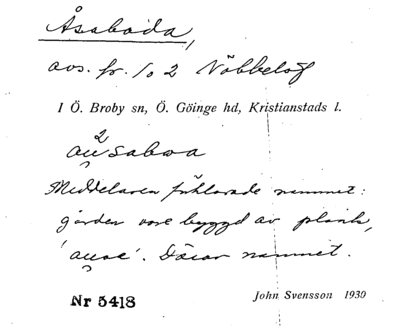 Åsaboda,
avs. fr. 1/0 2 Nöbbelöf
I Ö. Broby sn, Ö. Göinge hd, Kristianstads l.
2
au̯saboa
Meddelaren förklarade namnet:
gården vore byggd av plank,
'au̯sae'. Därav namnet.
John Svensson 1930
Nr 5418